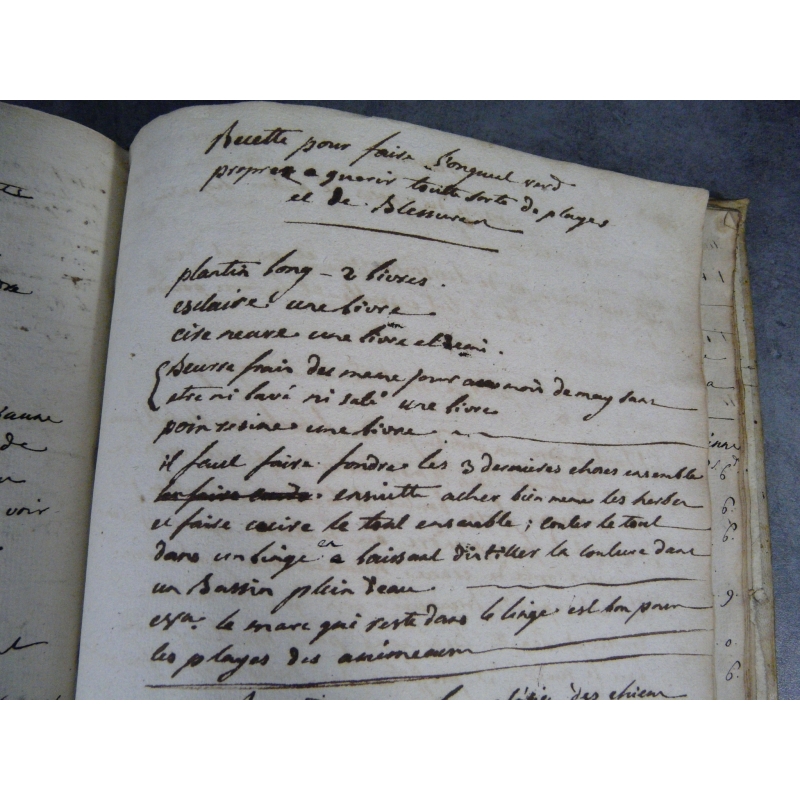 Recette pour faire Longuent verd
propre a guerir toutte sorte de playes
et de Blessures
plantin long - 2 livres.
esclaire une livre
cire neuve une livre et demi.
Beurre frais du meme jour au mois de may sans
etre ni lavé ni salé une livre
poin resine une livre
il faut faire fondre les 3 dernieres choses ensemble
ensuitte acher bien menu les herbes
et faire cuire le tout ensemble; couler le tout
dans un linge en laissant distiller la couleure dans
un Bassin plein d'eau
le marc qui reste dans le linge est bon pour
les playes des animeaux
des chiens
voir
de
6
6.
6.
9.
0.
6.